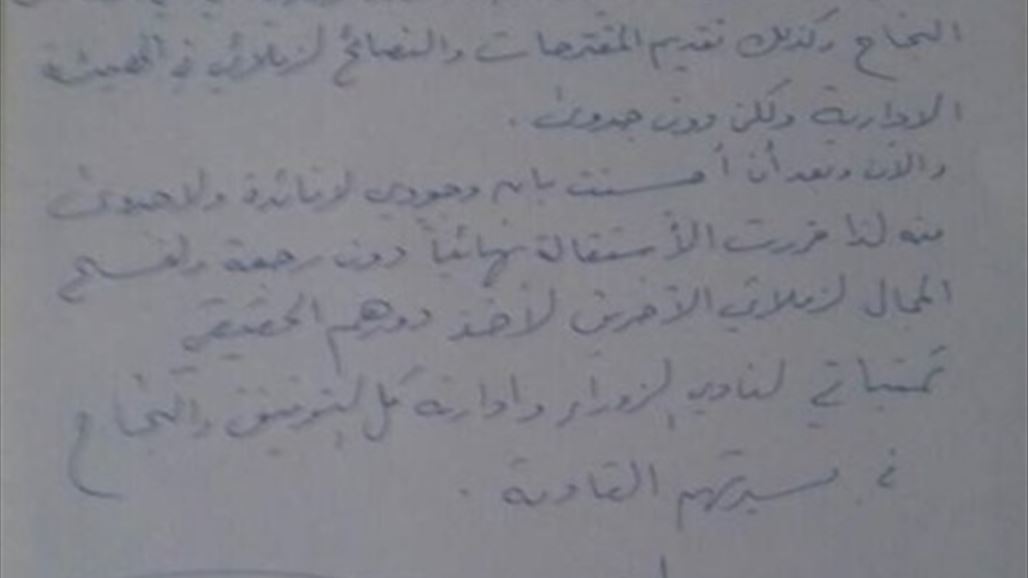 النجاح وكذلك تقديم المقترحات والنصائح لزملائي في الهيئة
الادارية ولكن دون جدوى .
والآن وبعد أن أحسست بانه وجودي لا فائدة ولا جدوى
منه لذا قررت الأستقالة نهائياً دون رجعة ولفسح
المجال لزملائي الآخرين لأخذ دورهم الحقيقي
تمنياتي لنادي الزوراء وادارته كل التوفيق والنجاح
في مسيرتهم القادمة .